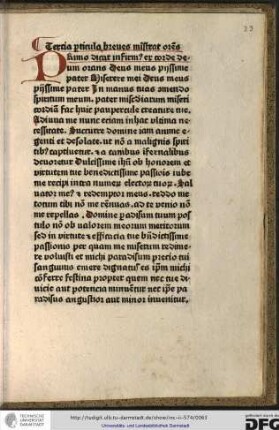 23
Tercia pticula breues mistrat orōes
Primo dicat infirm⁹ ex corde de
dum orans Deus meus pijssime
pater Miserere mei Deus meus
pijssime pater In manus tuas ōmendo
spiritum meum. pater misericdiarum miseri
cordiā fac huic paupercule creature tue.
Adiuua me nunc eciam in hac vltima ne
cessitate. Succurre domine iam anime e
genti et desolate. ut nō a malignis spiri
tib⁹ captiuetur. & a canibus īfernalibus
deuoretur Dulcissime ihū ob honorem et
virtutem tue benedictissime passiōis iube
me recipi intra numerū elector tuor. Sal
uator me⁹ & redemptor meus. reddo me
totum tibi nō me rennuas. ad te venio nō
me repellas. Domine paradisum tuum pos
tulo nō ob valorem meorum meritorum
sed in virtute & efficacia tue bn̄dictissime
passionis per quam me miserum redime
re voluisti et michi paradisum precio tui
sanguinis emere dignatus es ip̄m michi
cōferre festina propter quem nec tue di
uicie aut potencia minuētur nec ip̄e pa
radisus angustior aut minor inuenitur.
TECHNISCHE
UNIVERSITÄT
DARMSTADT
http://tudigit.ulb.tu-darmstadt.de/show/inc-ii-574/0063
Universitäts- und Landesbibliothek Darmstadt
gefördert durch die
DFG